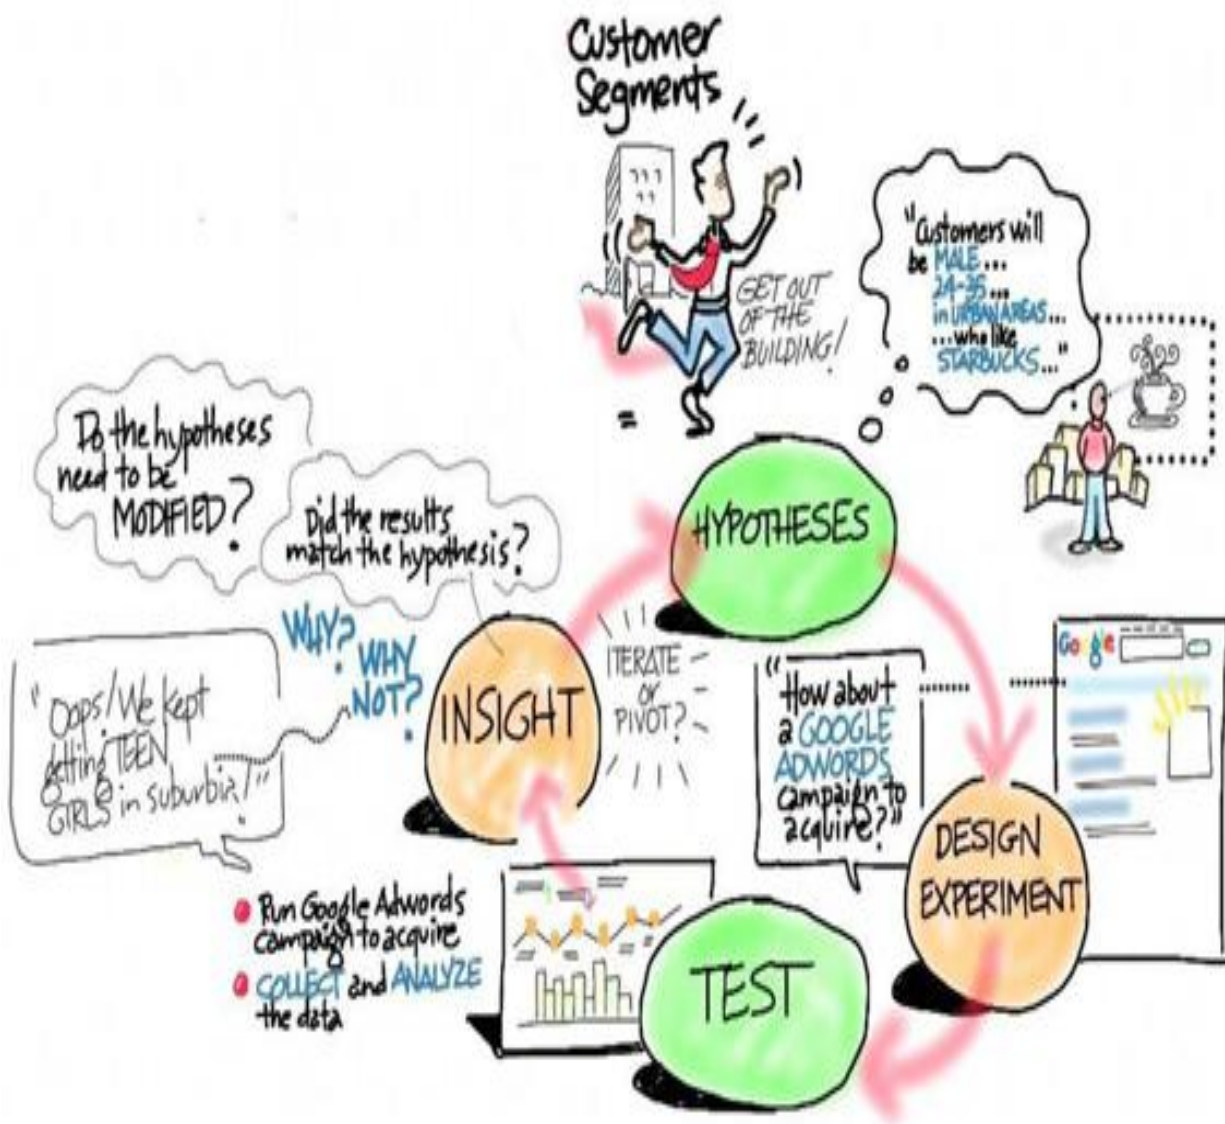 Customer
Segments
GET OUT
OF THE
BUILDING!
"Customers will
be MALE...
24-35...
in URBAN AREAS...
...who like
STARBUCKS..."
=
HYPOTHESES
Do the hypotheses
need to be
MODIFIED?
Did the results
match the hypothesis?
WHY?
WHY
NOT?
INSIGHT
ITERATE
or
PIVOT?
"Oops! We kept
getting TEEN
GIRLS in suburbia!"
"How about
a GOOGLE
ADWORDS
campaign to
acquire?"
Google
DESIGN
EXPERIMENT
Run Google Adwords
campaign to acquire
COLLECT and ANALYZE
the data
TEST